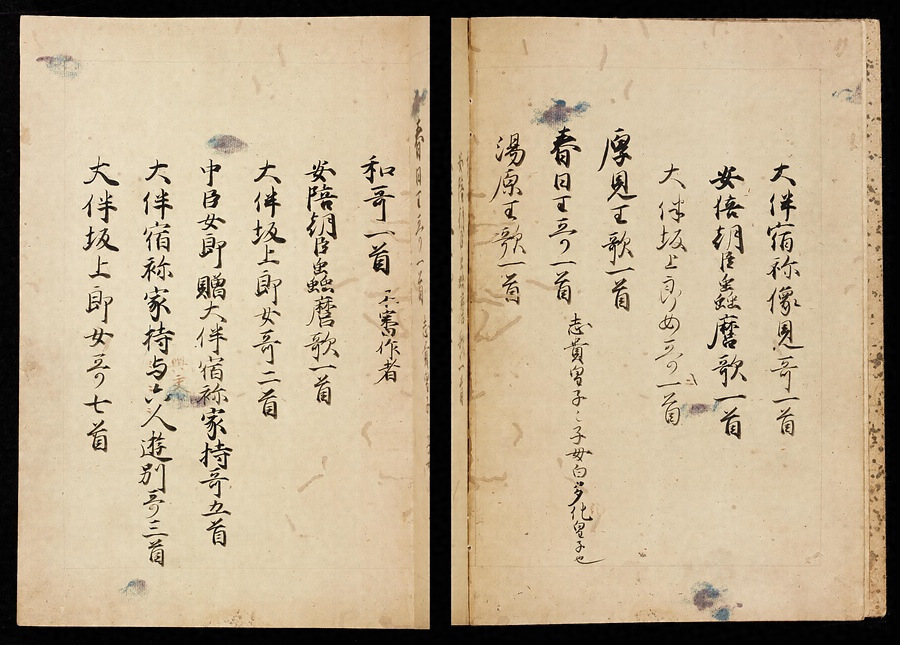 大伴宿祢像見哥一首
安倍朝臣蟲麿歌一首
大伴坂上郎女哥一首
厚見王歌一首
春日王哥一首
志貴皇子々子母白多化皇子也
湯原王歌一首
和哥一首 不審作者
安陪朝臣蟲麿歌一首
大伴坂上郎女哥二首
中臣女郎贈大伴宿祢家持哥五首
大伴宿祢家持与六人遊別哥三首
大伴坂上郎女哥七首